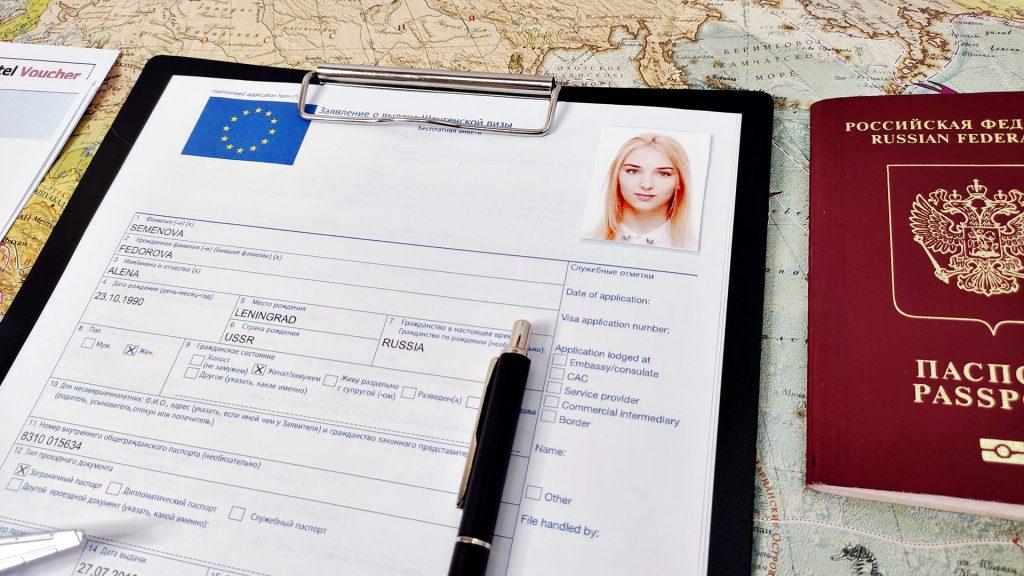 tel Voucher
Harmonised application form (*)
Заявление о выдаче Шенгенской визы
Бесплатная анкета
1 Фамилия (-и) (x)
SEMENOVA
2 Урожденная фамилия (-и) (бывшие фамилии) (x)
FEDOROVA
3 Имя/имена и отчество (x)
ALENA
4 Дата рождения (день-месяц-год)
23.10.1990
5 Место рождения
LENINGRAD
6 Страна рождения
USSR
7 Гражданство в настоящее вре
Гражданство по рождению (необ
ельно):
RUSSIA
8 Пол
Муж. X Жен.
9 Гражданское состояние
Холост
(не замужем) X Женат/замужем Живу раздельно
с супругой (-ом) Разведен(а)
дова
Другое (указать, какое именно)
10 Для несовершеннолетних: Ф.И.О., адрес (указать, если иной чем у Заявителя) и гражданство законного представите
(родитель, усыновитель, опекун или попечитель)
11 Номер внутреннего общегражданского паспорта (необязательно)
8310 015634
12 Тип проездного документа
X Заграничный паспорт Дипломатический паспорт Служебный паспорт
Другой проездной документ (указать, какой именно):
14 Дата выдачи
27.07.201
Служебные отметки
Date of application:
Visa application number:
Application lodged at
Embassy/consulate
CAC
Service provider
Commercial intermediary
Border
Name:
Other
File handled by:
РОССИЙСКАЯ ФЕД
RUSSIAN FEDERA
ПАСПО
PASSP
БЕРИНГОВО
МОРЕ
ОХОТСКОЕ
МОРЕ
КАМЧАТСКОЕ